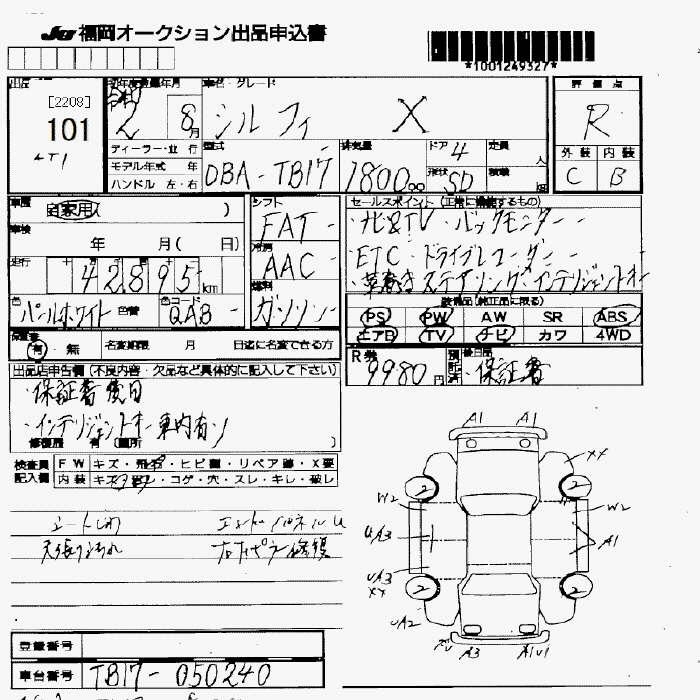 JU 福岡オークション出品申込書
*1001249327*
[2208]
101
初年度登録年月
2 8月
車名・グレード
シルフィ X
評価点
R
外装 内装
C B
ディーラー・並行
モデル年式 年
ハンドル 左・右
型式
DBA-TB17
排気量
1800cc
ドア 4
形状 SD
定員 人
積載 kg
車歴
自家用( )
車検
年 月( 日)
走行
42895km
色
パールホワイト 色替
色コード
QAB
シフト
FAT
冷房
AAC
燃料
ガソリン
セールスポイント(正常に機能するもの)
ナビ&TV・バックモニター
ETC・ドライブレコーダー
革巻きステアリング・インテリジェントキー
装備品(純正品に限る)
PS PW AW SR ABS
エアB TV ナビ カワ 4WD
保証書
有・無 名変期限 月 日迄に名変できる方
R券
9980円
預託済
後日品
・保証書
出品店申告欄(不良内容・欠品など具体的に記入して下さい)
・保証書後日
・インテリジェントキー車内有り
修復歴 有(箇所 )
検査員 FW キズ・飛石・ヒビ割・リペア跡・X要
記入欄 内装 キズ・コゲ・穴・スレ・キレ・破レ
A1 A1
XX
2 2
W2 W2
UA3 A1
UA3
XX
2 2
UA2
A3 A1U1
登録番号
車台番号 TB17-050240